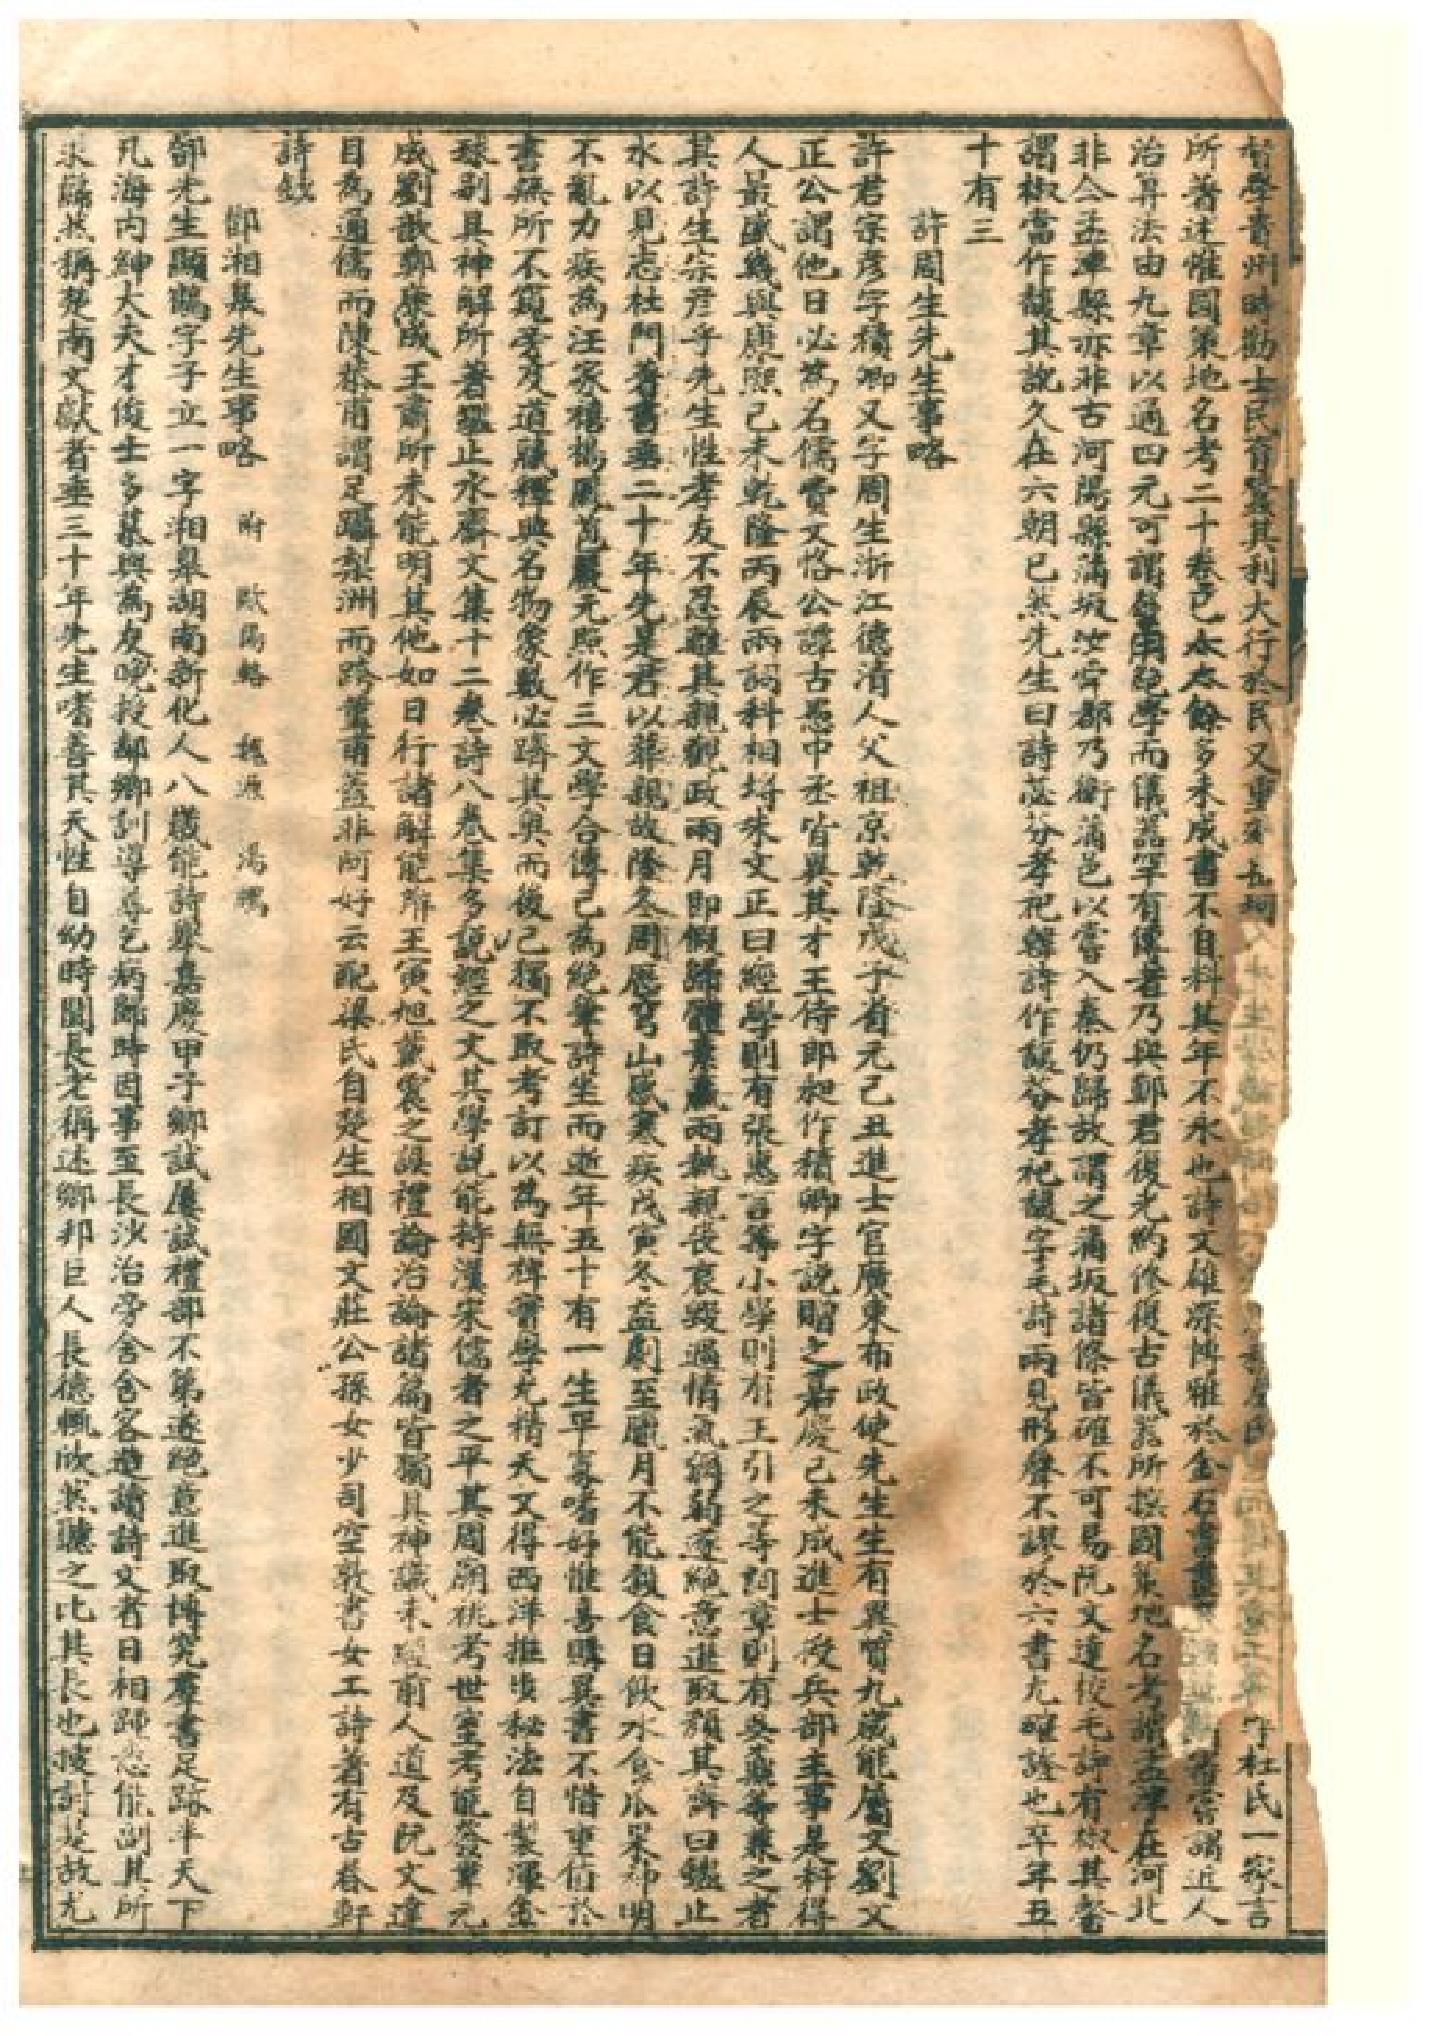 督學青州時勸士民育蠶其利大行於民又重 守杜氏一家言
所著述惟國策地名考二十卷已 餘多未成書不自料其年不永也詩文雄深博雅於金石書畫 嘗謂近人
治算法由九章以通四元可謂 絶學而儀器罕有傳者乃與鄭君復光約修復古儀器所撰國策地名考謂孟津在河北
非今孟津縣亦非古河陽縣蒲坂 乃衛蒲邑以嘗入秦仍歸故謂之蒲坂諸條皆確不可易阮文達校毛詩有椒其馨
謂椒當作馥其說久在六朝已然先生曰詩苾芬孝祀韓詩作馥芬孝祀馥字毛詩兩見形聲不誤於六書尤確證也卒年五
十有三
許周生先生事略
許君宗彦字積卿又字周生浙江德清人父祖京乾隆戊子 元己丑進士官廣東布政使先生生有異質九歲能屬文劉文
正公謂他日必為名儒費文恪公譚古愚中丞皆異其才王侍郎昶作積卿字說贈之嘉慶己未成進士授兵部主事是科得
人最盛幾與康熙己未乾隆丙辰兩詞科相埒朱文正曰經學則有張惠言等小學則有王引之等詞章則有吳鼒等兼之者
其許生宗彦乎先生性孝友不忍離其親觀政兩月即假歸 兩執親喪哀毀過情氣稱弱遂絶意進取顏其齋曰鑑止
水以見志杜門著書垂二十年先是君以葬親故隆冬周歷穹山感寒疾戊寅冬益劇至臘月不能穀食日飲水食瓜果神明
不亂力疾為汪家禧楊鳳苞嚴元照作三文學合傳已為絶筆詩坐而逝年五十有一生平寡嗜好惟喜購異書不惜重值於
書無所不窺旁及道藏釋典名物象數必躋其奥而後已獨不取考訂以為無裨實學尤精天文得西洋推步秘法自製渾金
球别具神解所著鑑止水齋文集十二卷詩八卷集多說經之文其學說能持漢宋儒者之平其周廟祧考世室考能發韋元
成劉歆鄭康成王肅所未能明其他如日行諸解能辨王寅旭戴震之誤禮論治論諸篇皆獨具神識未經前人道及阮文達
目為通儒而陳恭甫謂足躡梨洲而跨堇甫蓋非阿好云配梁氏自楚生相國文莊公孫女少司空敦書女工詩著有古春軒
詩鈔
鄧湘臯先生事略 附 歐陽輅 魏源 湯鵬
鄧先生顯鶴字子立一字湘臯湖南新化人八歲能詩舉嘉慶甲子鄉試屢試禮部不第遂絶意進取博究羣書足跡半天下
凡海内紳大夫才俊士多慕與為友晚授鄰鄉訓導尋乞病歸時因事至長沙治旁舍舍客造請詩文者日相踵悉能副其所
求歸然稱楚南文獻者垂三十年先生嗜善其天性自幼時聞長老稱述鄉邦巨人長德輒欣然聽之比其長也搜討是故尤